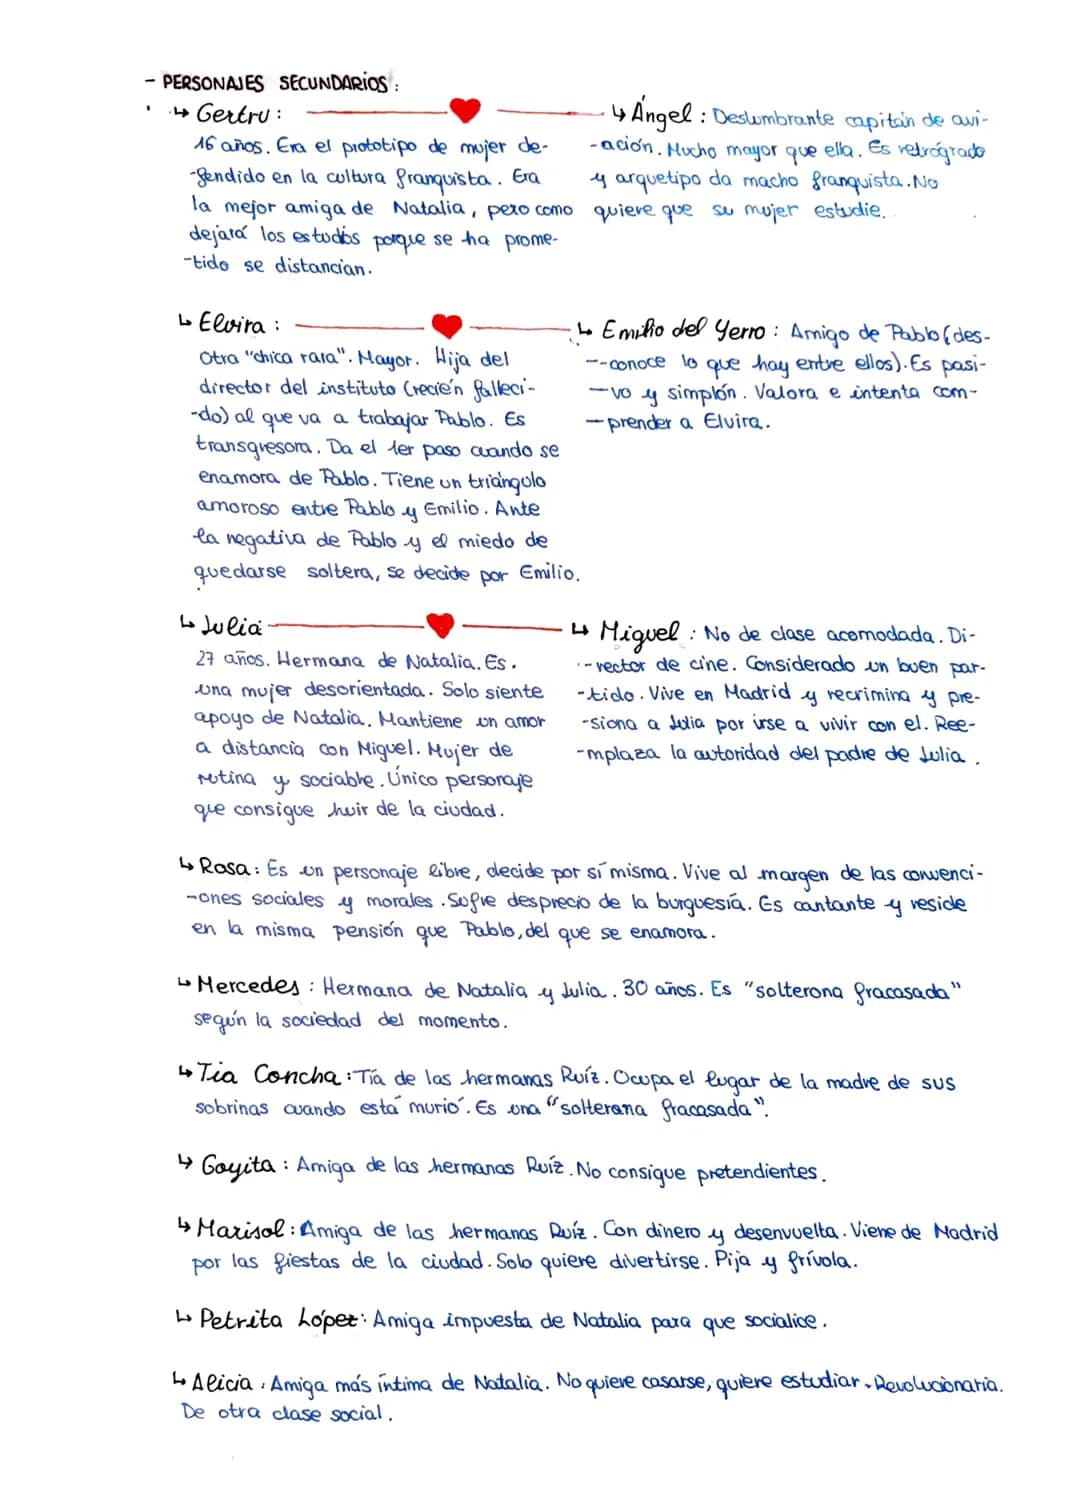 - PERSONAJES SECUNDARIOS:
↳ Gertru:
16 años. Era el prototipo de mujer de-
-fendido en la cultura franquista. Era
la mejor amiga de Natalia, pero como
dejará los estudios porque se ha prome-
-tido se distancian.
↳ Ángel: Deslumbrante capitán de avi-
-ación. Mucho mayor que ella. Es retrógrado
y arquetipo da macho franquista. No
quiere que su mujer estudie.
↳ Elvira:
Otra "chica rara". Mayor. Hija del
director del instituto (recién falleci-
-do) al que va a trabajar Pablo. Es
transgresora. Da el 1er paso cuando se
enamora de Pablo. Tiene un triángulo
amoroso entre Pablo y Emilio. Ante
la negativa de Pablo y el miedo de
quedarse soltera, se decide por Emilio.
↳ Emilio del Yerro: Amigo de Pablo (des-
-conoce lo que hay entre ellos). Es pasi-
-vo y simplón. Valora e intenta com-
-prender a Elvira.
↳ Julia
27 años. Hermana de Natalia. Es
una mujer desorientada. Solo siente
apoyo de Natalia. Mantiene un amor
a distancia con Miguel. Mujer de
rutina y sociable. Único personaje
que consigue huir de la ciudad.
↳ Miguel: No de clase acomodada. Di-
-rector de cine. Considerado un buen par-
-tido. Vive en Madrid y recrimina y pre-
-siona a Julia por irse a vivir con el. Ree-
-mplaza la autoridad del padre de Julia.
↳ Rosa: Es un personaje libre, decide por sí misma. Vive al margen de las convenci-
-ones sociales y morales. Sufre desprecio de la burguesía. Es cantante y reside
en la misma pensión que Pablo, del que se enamora.
↳ Mercedes: Hermana de Natalia y Julia. 30 años. Es "solterona fracasada"
según la sociedad del momento.
↳ Tia Concha: Tía de las hermanas Ruíz. Ocupa el lugar de la madre de sus
sobrinas cuando está murió. Es una "solterana fracasada".
↳ Goyita: Amiga de las hermanas Ruíz. No consigue pretendientes.
↳ Marisol: Amiga de las hermanas Ruíz. Con dinero y desenvuelta. Viene de Madrid
por las fiestas de la ciudad. Solo quiere divertirse. Pija y frívola.
↳ Petrita López: Amiga impuesta de Natalia para que socialice.
↳ Alicia: Amiga más íntima de Natalia. No quiere casarse, quiere estudiar. Revolucionaria.
De otra clase social.